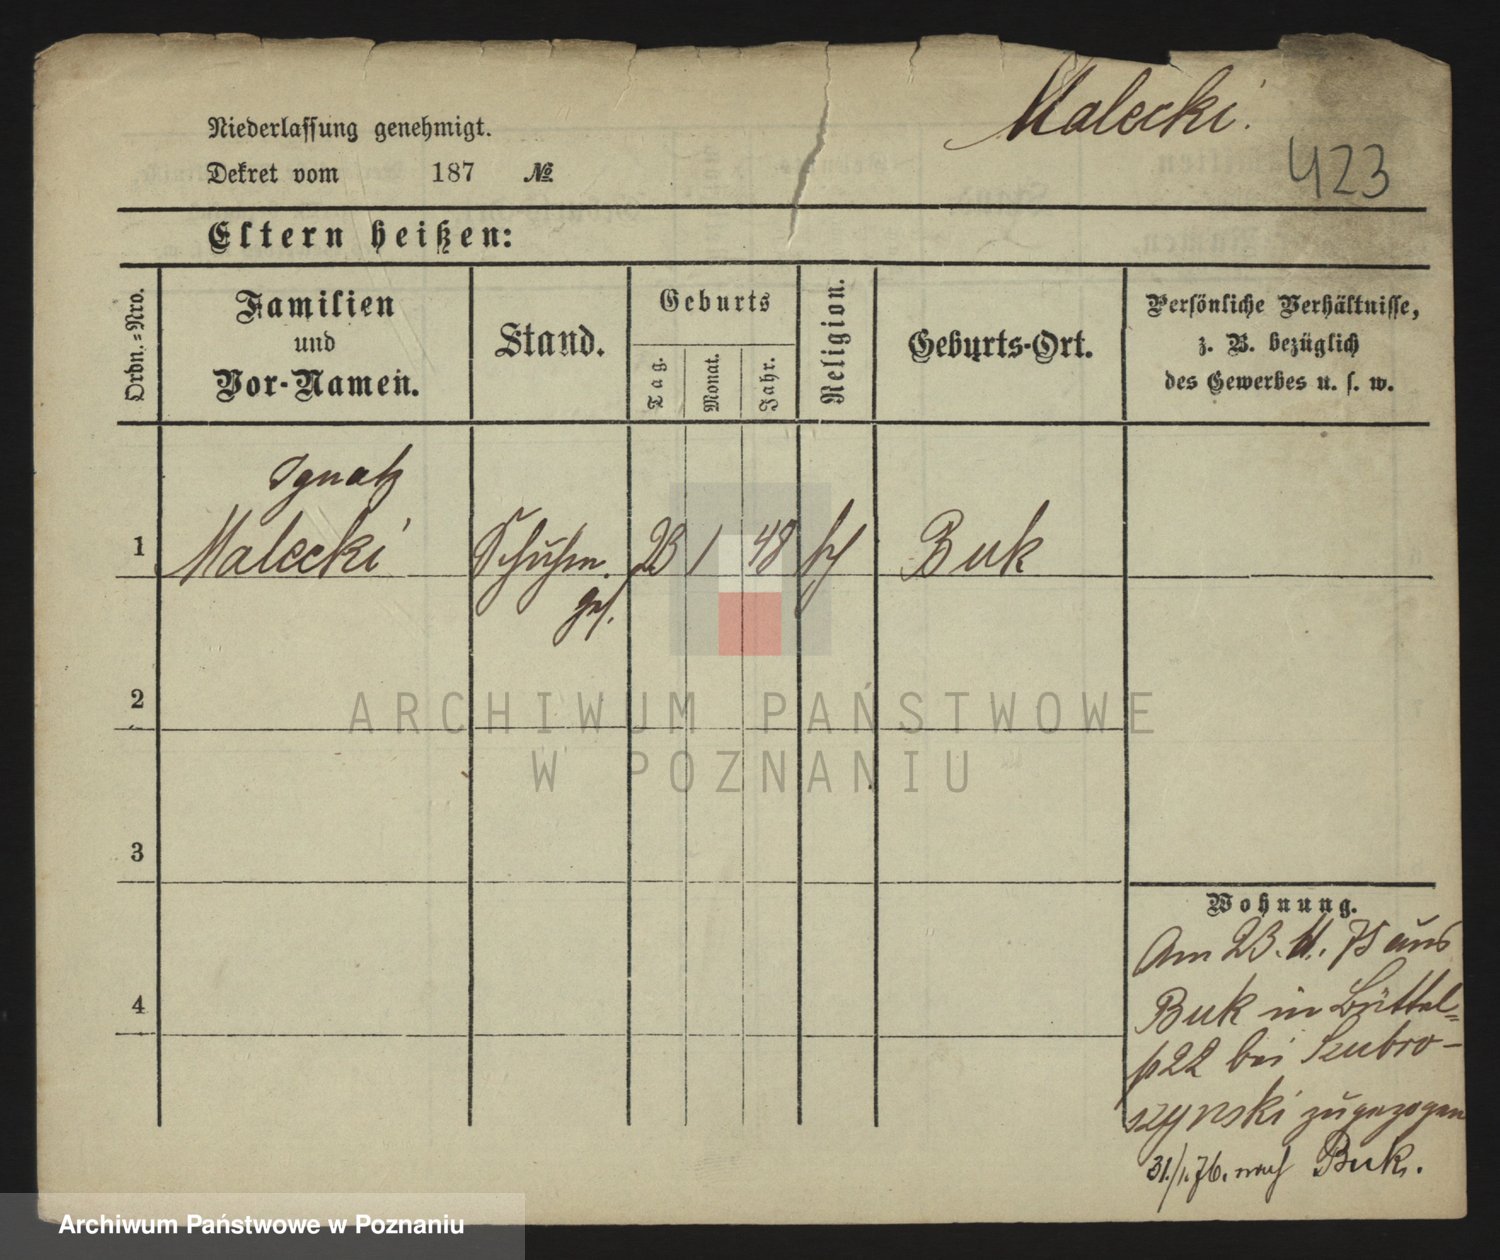 Malecki.
423
Niederlassung genehmigt.
Dekret vom 187 №
Eltern heißen:
Ordn.-Nro.
Familien
und
Vor-Namen.
Stand.
Geburts
Tag.
Monat.
Jahr.
Religion.
Geburts-Ort.
Persönliche Verhältnisse,
z. B. bezüglich
des Gewerbes u. s. w.
Ignatz
1 Malecki Schuhm. 23 1 48 Buk
ges.
2
3
4
ARCHIWUM PAŃSTWOWE
W POZNANIU
Wohnung.
Am 23. 11. 75 aus
Buk in Büttel=
22 bei Szubro-
szynski zugezogen
31./1. 76. nach Buk.
Archiwum Państwowe w Poznaniu